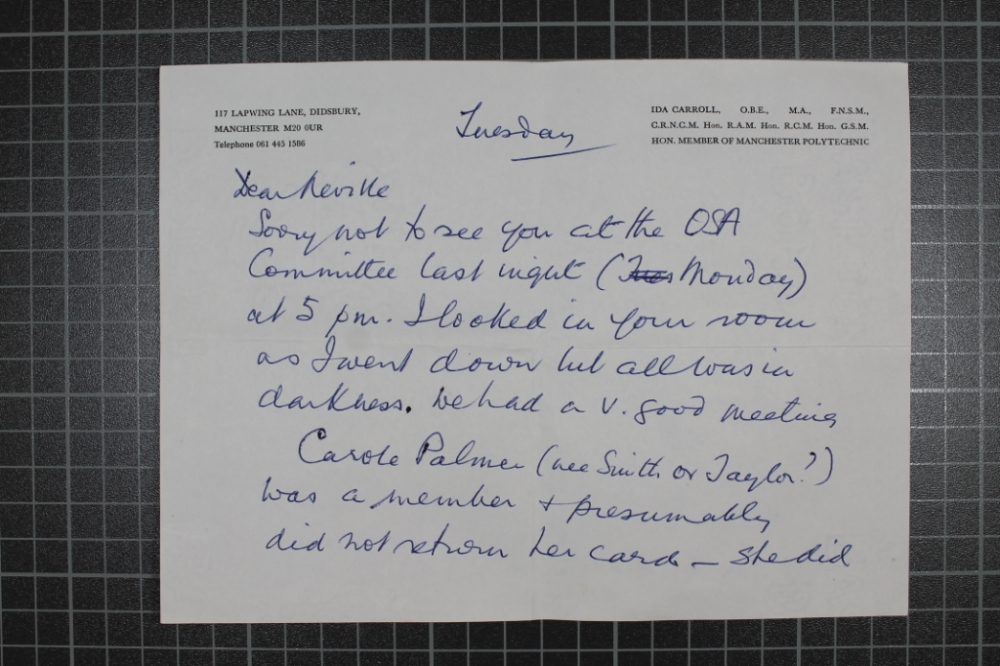 117 LAPWING LANE, DIDSBURY,
MANCHESTER M20 0UR
Telephone 061 445 1586
IDA CARROLL, O.B.E., M.A., F.N.S.M.,
C.R.N.C.M. Hon. R.A.M. Hon. R.C.M. Hon. G.S.M.
HON. MEMBER OF MANCHESTER POLYTECHNIC
Tuesday
Dear Neville
Sorry not to see you at the OSA
Committee last night (Tues Monday)
at 5 pm. I looked in your room
as I went down but all was in
darkness. We had a v. good meeting
Carole Palmer (nee Smith or Taylor?)
was a member + presumably
did not return her card – she did